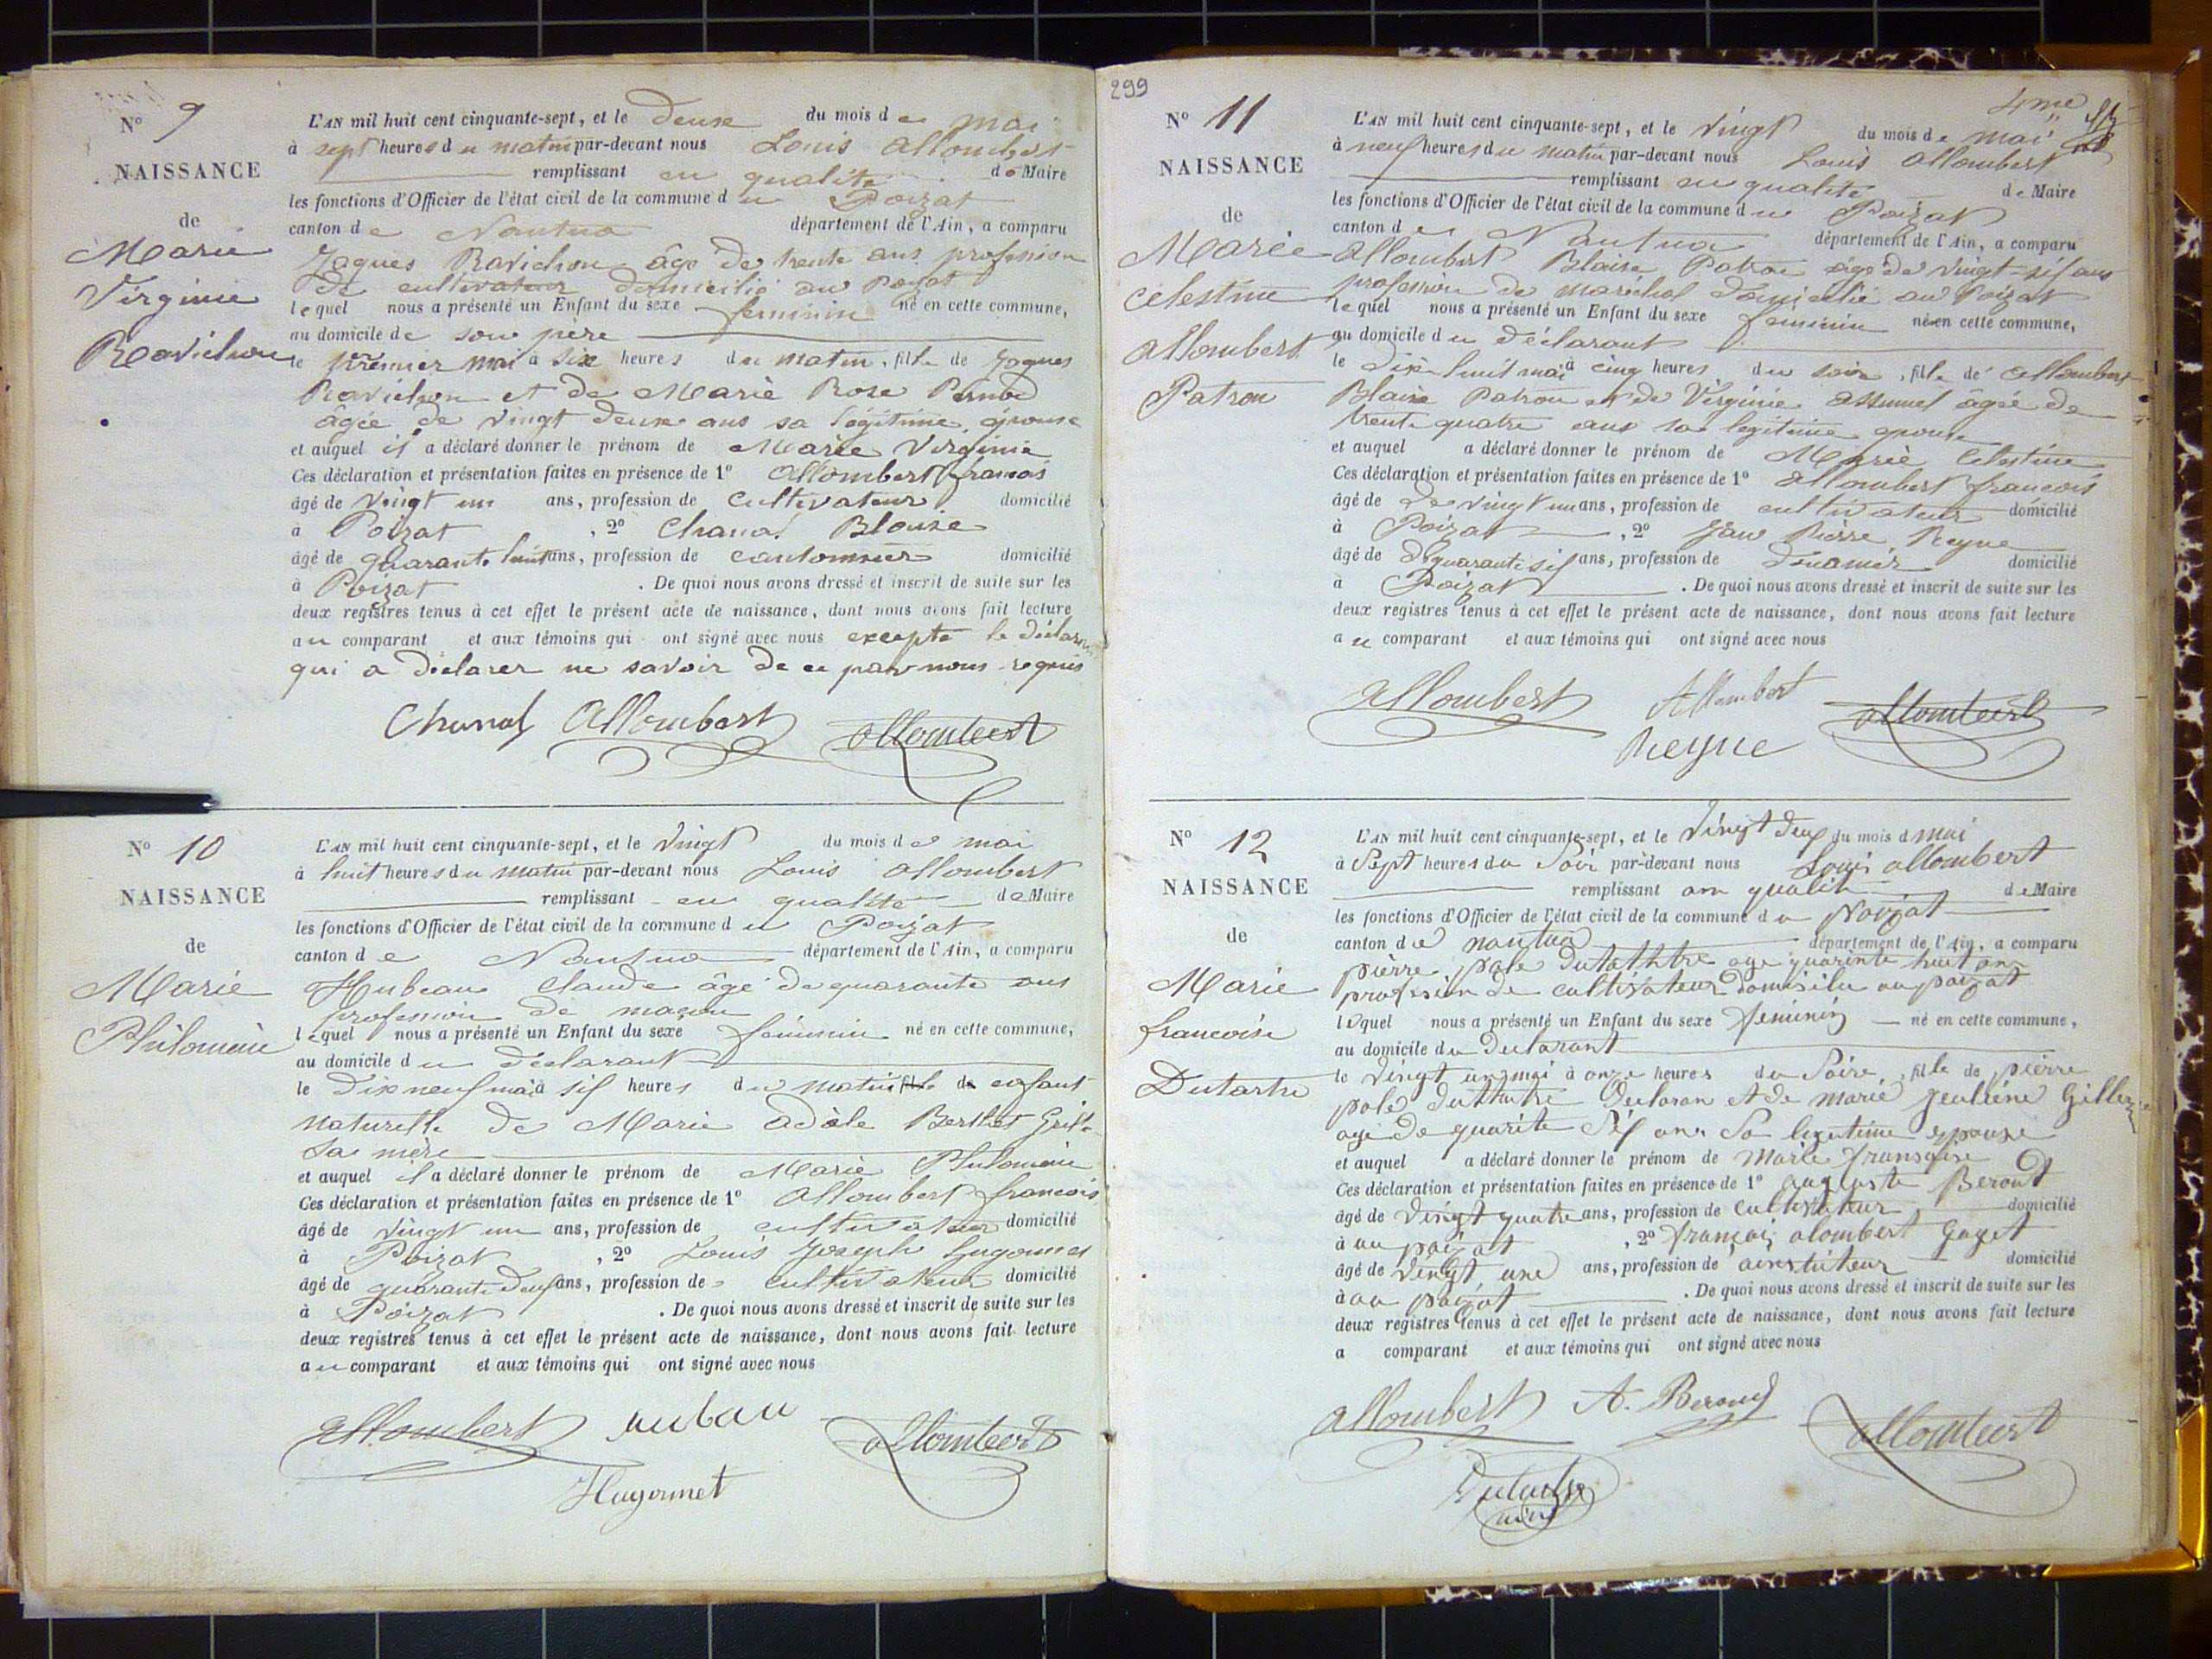 N° 9
NAISSANCE
de
Marie
Virginie
Ravichon
L'AN mil huit cent cinquante-sept, et le deux du mois de mai
à sept heures du matin par-devant nous Louis Allombert
remplissant en qualité de Maire
les fonctions d'Officier de l'état civil de la commune du Poizat
canton de Nantua département de l'Ain, a comparu
Jaques Ravichon âge de trente ans profession
de cultivateur domicilié au Poizat
lequel nous a présenté un Enfant du sexe feminin né en cette commune,
au domicile de son père
le premier mai à six heures du matin, fille de Jaques
Ravichon et de Marie Rose
âgée de vingt deux ans sa légitime épouse
et auquel il a déclaré donner le prénom de Marie Virginie
Ces déclaration et présentation faites en présence de 1° Allombert francois
âgé de vingt un ans, profession de cultivateur domicilié
à Poizat , 2° Chanal Blouise
âgé de quarante huit ans, profession de cantonnier domicilié
à Poizat . De quoi nous avons dressé et inscrit de suite sur les
deux registres tenus à cet effet le présent acte de naissance, dont nous avons fait lecture
au comparant et aux témoins qui ont signé avec nous excepté le déclarant
qui a déclarer ne savoir de ce par nous requis
Chanal Allombert Allombert
N° 10
NAISSANCE
de
Marie
Philomène
L'AN mil huit cent cinquante-sept, et le vingt du mois de mai
à huit heures du matin par-devant nous Louis Allombert
remplissant en qualité de Maire
les fonctions d'Officier de l'état civil de la commune du Poizat
canton de Nantua département de l'Ain, a comparu
Hubeau Claude âgé de quarante ans
profession de maçon
lequel nous a présenté un Enfant du sexe féminin né en cette commune,
au domicile du déclarant
le dix neuf mai à six heures du matin fille de enfant
naturelle de Marie Adèle Berthet
sa mère
et auquel il a déclaré donner le prénom de Marie Philomène
Ces déclaration et présentation faites en présence de 1° Allombert francois
âgé de vingt un ans, profession de cultivateur domicilié
à Poizat , 2° Louis Joseph Hugonnet
âgé de quarante deux ans, profession de cultivateur domicilié
à Poizat . De quoi nous avons dressé et inscrit de suite sur les
deux registres tenus à cet effet le présent acte de naissance, dont nous avons fait lecture
au comparant et aux témoins qui ont signé avec nous
Allombert hubau Allombert
Hugonnet
299
4me
N° 11
NAISSANCE
de
Marie
celestine
Allombert
Patron
L'AN mil huit cent cinquante-sept, et le vingt du mois de mai
à neuf heures du matin par-devant nous Louis Allombert
remplissant en qualité de Maire
les fonctions d'Officier de l'état civil de la commune du Poizat
canton de Nantua département de l'Ain, a comparu
Allombert Blaise Patron âgé de vingt-six ans
profession de maréchal domicilié au Poizat
lequel nous a présenté un Enfant du sexe féminin né en cette commune,
au domicile du déclarant
le dix huit mai à cinq heures du soir, fille de Allombert
Blaise Patron et de Virginie Assumel âgée de
trente quatre ans sa legitime epouse
et auquel a déclaré donner le prénom de Marie Célestine
Ces déclaration et présentation faites en présence de 1° Allombert francois
âgé de de vingt un ans, profession de cultivateur domicilié
à Poizat , 2° Jean Pierre Reyne
âgé de quarante six ans, profession de douanier domicilié
à Poizat . De quoi nous avons dressé et inscrit de suite sur les
deux registres tenus à cet effet le présent acte de naissance, dont nous avons fait lecture
au comparant et aux témoins qui ont signé avec nous
Allombert Allombert Allombert
Reyne
N° 12
NAISSANCE
de
Marie
francoise
Dutartre
L'AN mil huit cent cinquante-sept, et le vingt deux du mois d mai
à sept heures du soir par-devant nous Louis allombert
remplissant an qualité de Maire
les fonctions d'Officier de l'état civil de la commune du poizat
canton de nantua département de l'Ain, a comparu
pièrre pole age quarante huit an
profession de cultivateur domisilie au poizat
lequel nous a présenté un Enfant du sexe feminin né en cette commune,
au domicile du declarant
le vingt un mai à onze heures du soire, fille de pièrre
pole declaran et de marie
agé de quarite sif ans sa legitime epouse
et auquel a déclaré donner le prénom de Marie fransoise
Ces déclaration et présentation faites en présence de 1° auguste Berout
âgé de vingt quatre ans, profession de cultivateur domicilié
à au poizat , 2° françois alombert Goget
âgé de vingt une ans, profession de ainstituteur domicilié
à au poizat . De quoi nous avons dressé et inscrit de suite sur les
deux registres tenus à cet effet le présent acte de naissance, dont nous avons fait lecture
a comparant et aux témoins qui ont signé avec nous
Allombert A. Beroud Allombert
Dutartre